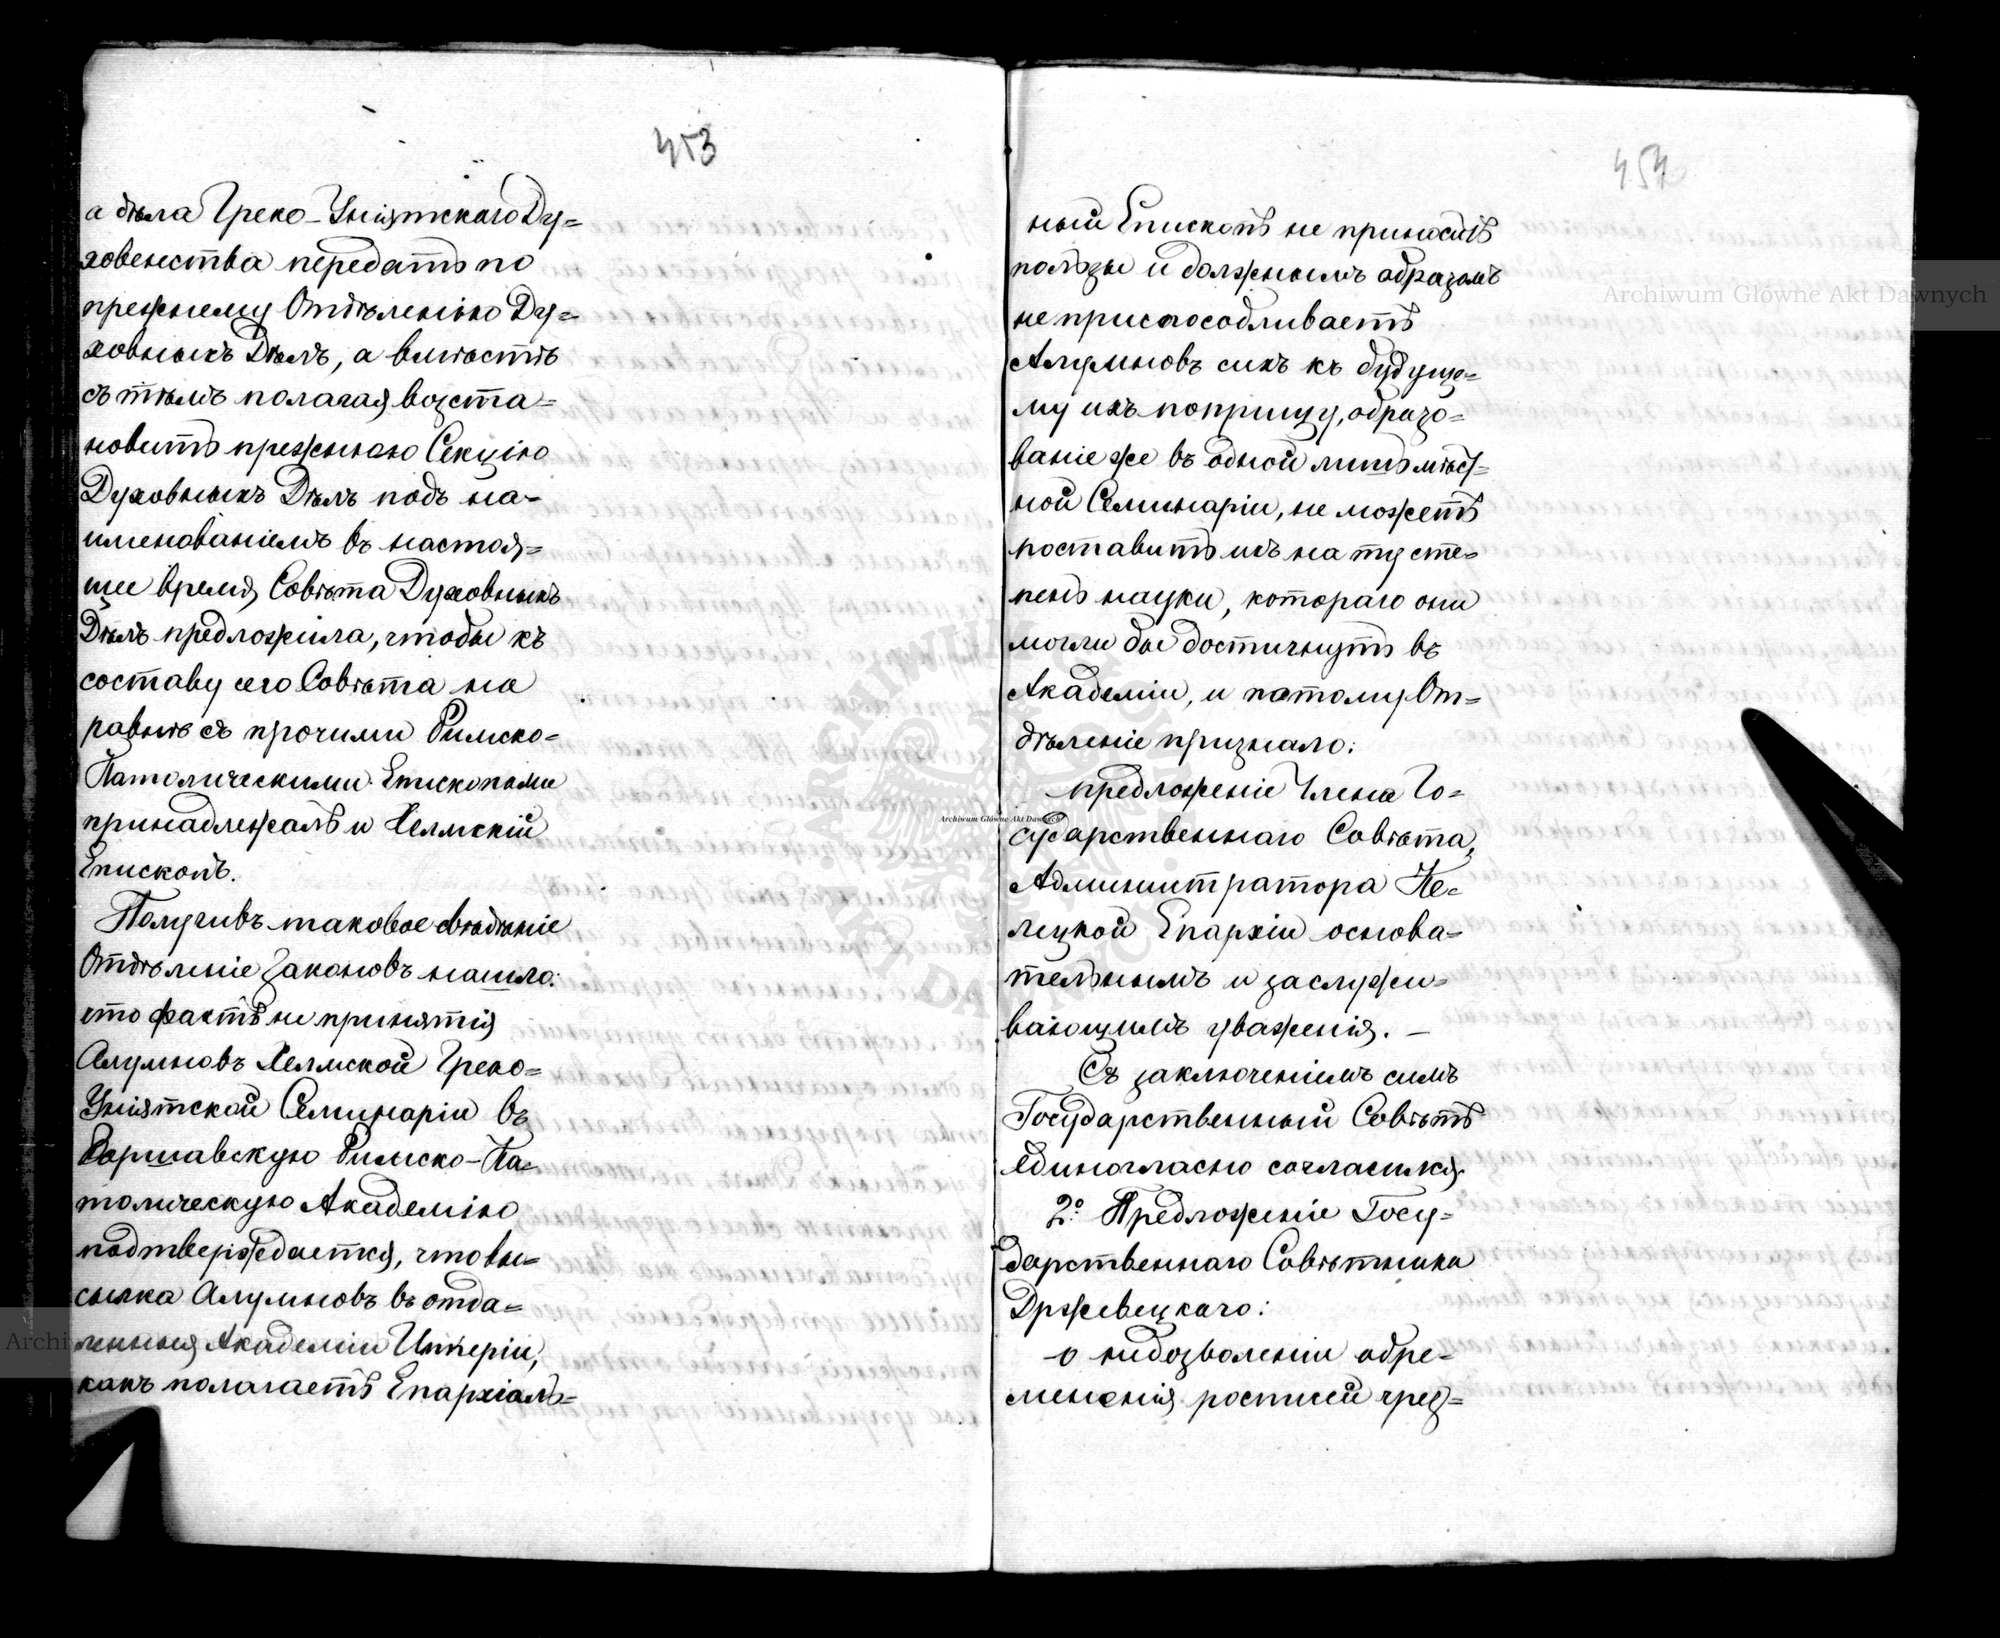 453
а дѣла Греко-Уніятскаго Ду=
ховенства передать по
прежнему Отдѣленію Ду=
ховныхъ Дѣлъ, а вмѣстѣ
съ тѣмъ полагая возста=
новить прежнюю Секцію
Духовныхъ Дѣлъ подъ на=
именованіемъ въ настоя=
щее время Совѣта Духовныхъ
Дѣлъ предложила, чтобы къ
составу сего Совѣта на
равнѣ съ прочими Римско=
Католическими Епископами
принадлежалъ и Хелмскій
Епископъ.
Получивъ таковое свѣдѣніе
Отдѣленіе Законовъ нашло:
что фактъ не принятія
Алумновъ Хелмской Греко=
Уніятской Семинаріи въ
Варшавскую Римско-Ка=
толическую Академію
подтверждается, что вы=
сылка Алумновъ въ отда=
ленныя Академіи Имперіи,
какъ полагаетъ Епархіаль=
454
ный Епископъ не приноситъ
пользы и должнымъ образомъ
не приспособливаетъ
Алумновъ сихъ къ будуще=
му ихъ поприщу, образо=
ваніе же въ одной лишь мѣст=
ной Семинаріи, не можетъ
поставить ихъ на ту сте=
пень науки, котораго они
могли бы достигнуть въ
Академіи, и потому От=
дѣленіе признало:
предложеніе Члена Го=
сударственнаго Совѣта,
Администратора Ке=
лецкой Епархіи основа=
тельнымъ и заслужи=
вающимъ уваженія. —
Съ заключеніемъ симъ
Государственный Совѣтъ
единогласно согласился.
2º. Предложеніе Госу=
дарственнаго Совѣтника
Држевецкаго:
о недозволеніи обре=
мененія росписей чрез=
Archiwum Główne Akt Dawnych
Archiwum Główne Akt Dawnych